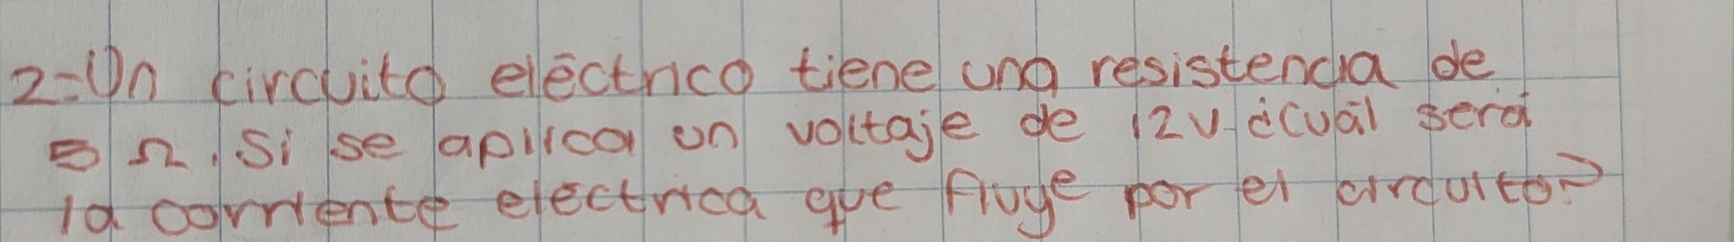 2-Un circuito eléctrico tiene una resistencia de
5 Ω. Si se aplica un voltaje de 12V ¿cuál será
la corriente eléctrica que fluye por el circuito?